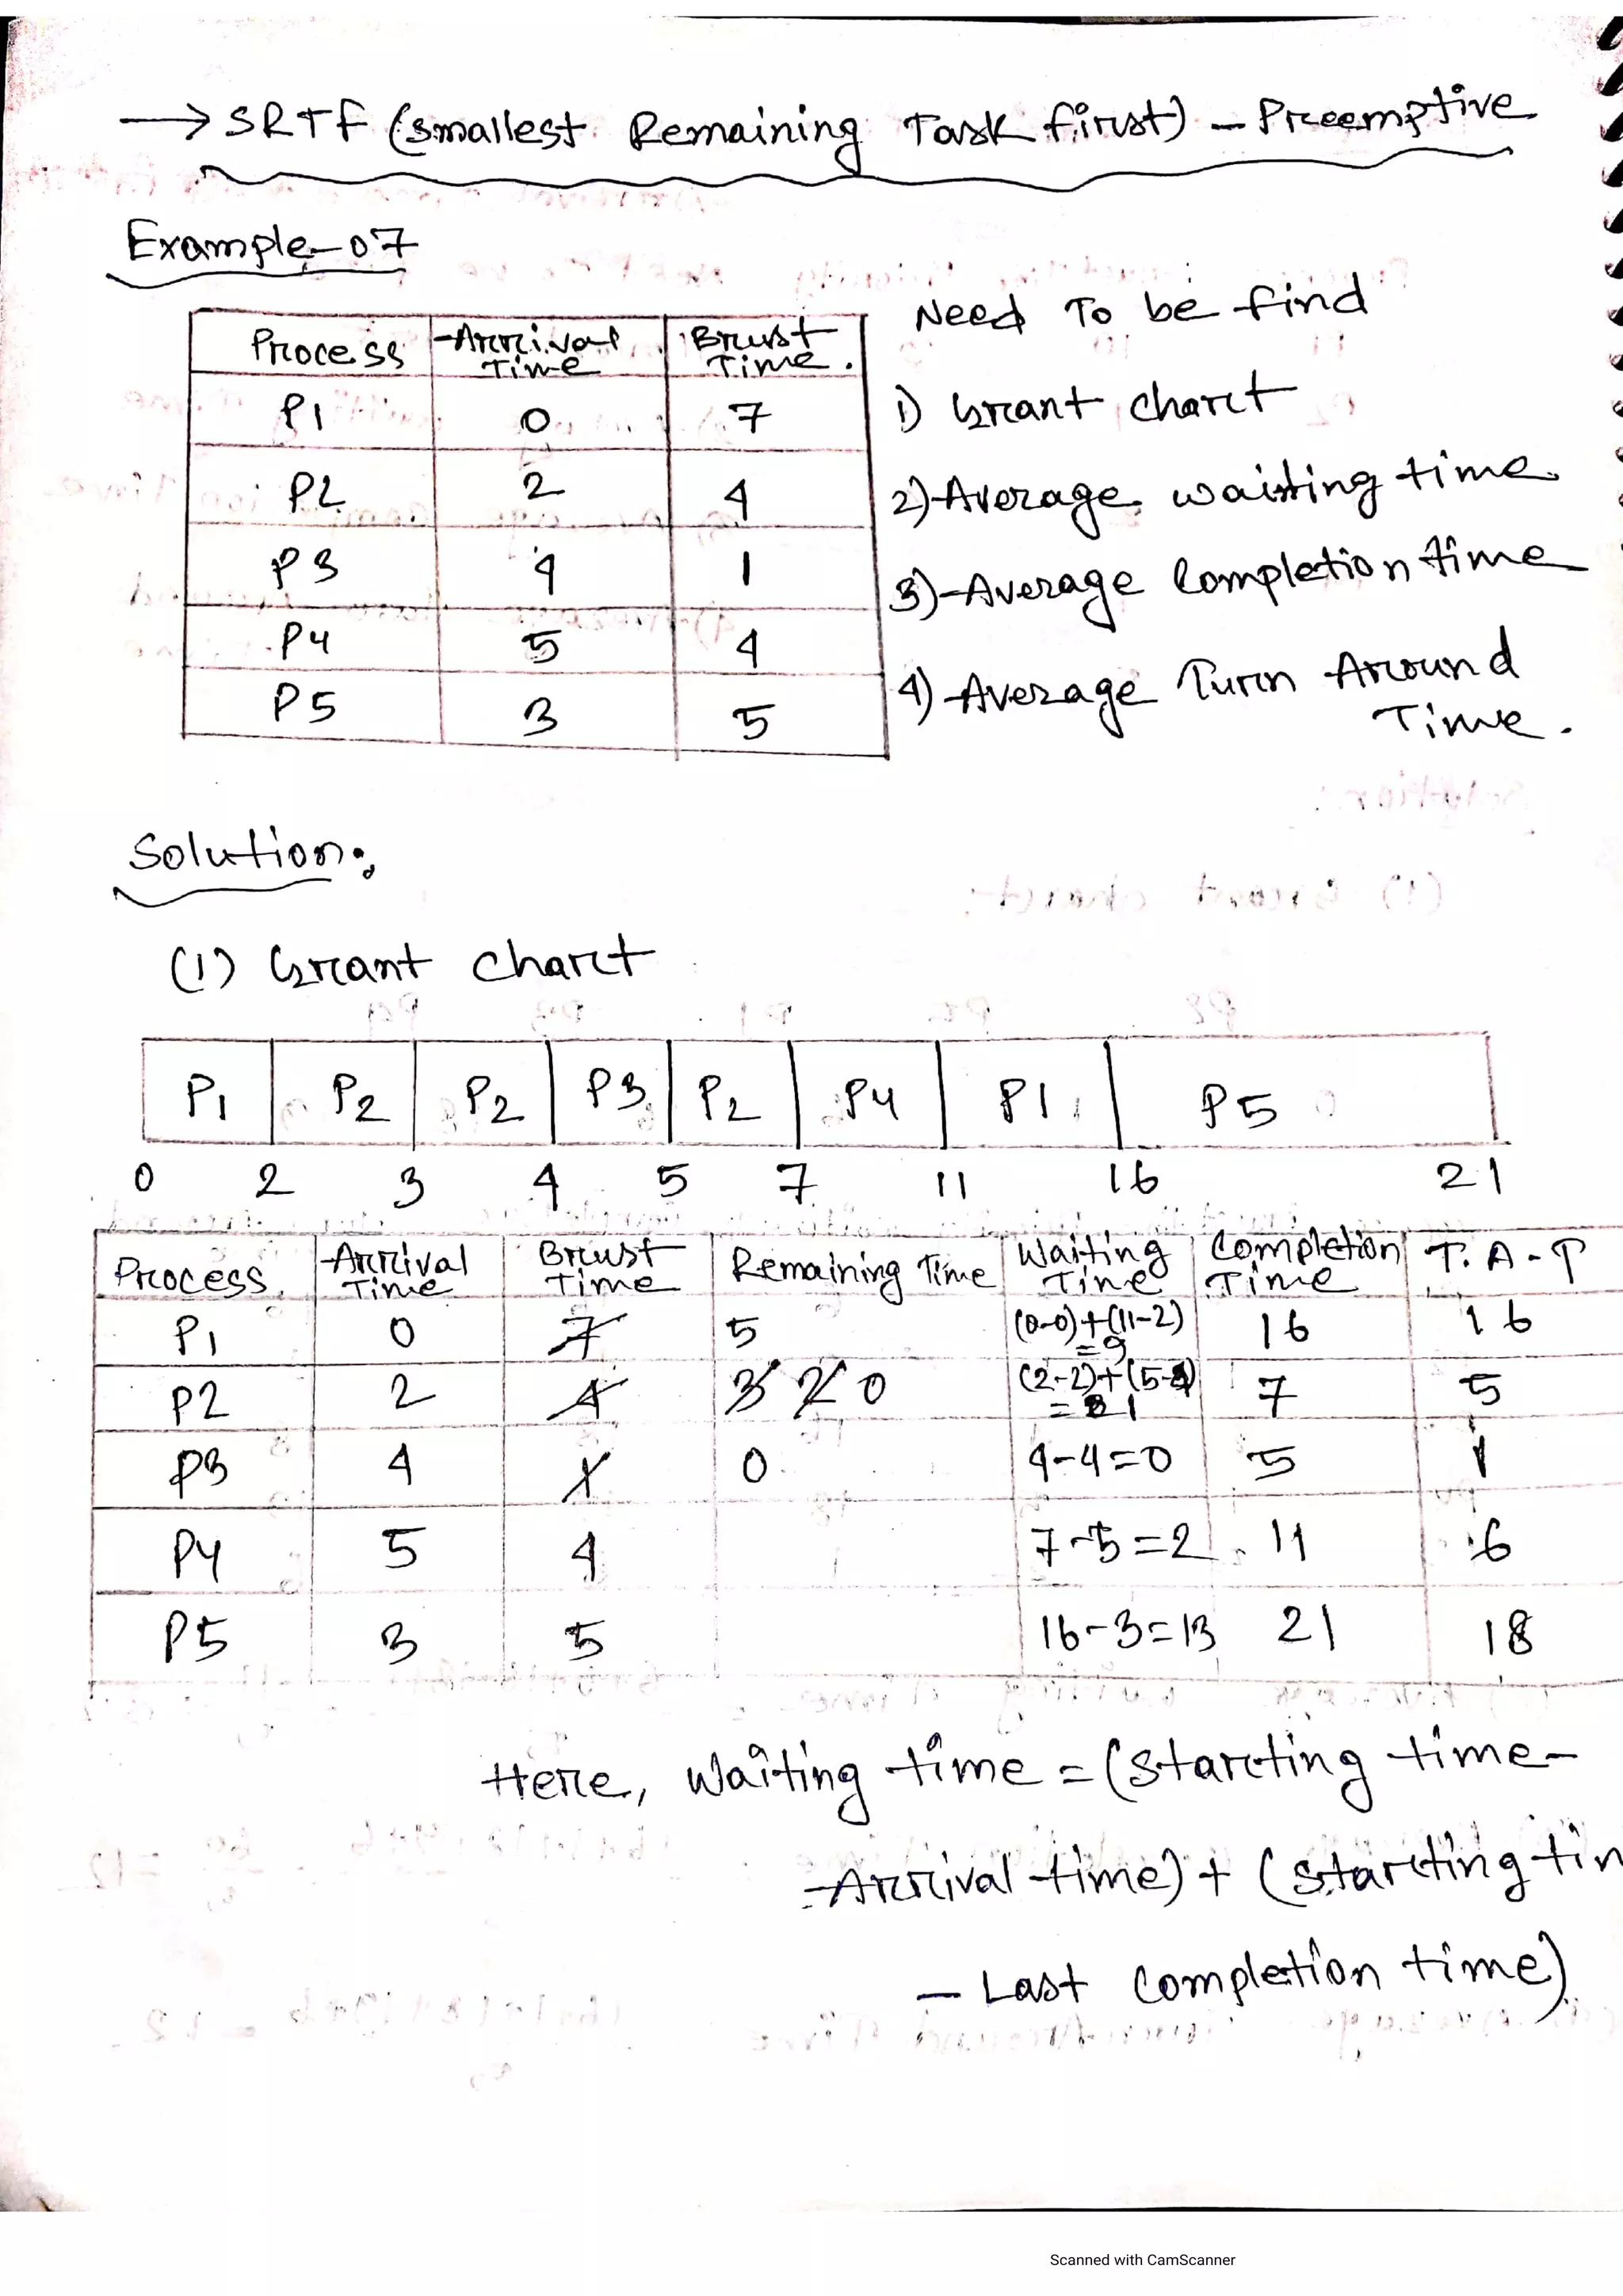 → SRTF (smallest Remaining Task first) - Preemptive
Example-07
Need To be find
Process Arrival Time Brust Time.
P1 0 7
P2 2 4
P3 4 1
P4 5 4
P5 3 5
1) Grant chart
2) Average waiting time
3) Average Completion time
4) Average Turn Around
Time.
Solution:
(1) Grant chart
P1 P2 P2 P3 P2 P4 P1 P5
0 2 3 4 5 7 11 16 21
Process Arrival Time Brust Time Remaining Time Waiting Time Completion Time T.A.T
P1 0 7 5 (0-0)+(11-2) =9 16 16
P2 2 4 3 2 0 (2-2)+(5-4) = 1 7 5
P3 4 1 0 4-4=0 5 1
P4 5 4 7-5=2 11 6
P5 3 5 16-3=13 21 18
Here, Waiting time = (starting time-
Arrival time) + (starting tim
- Last Completion time)
Scanned with CamScanner